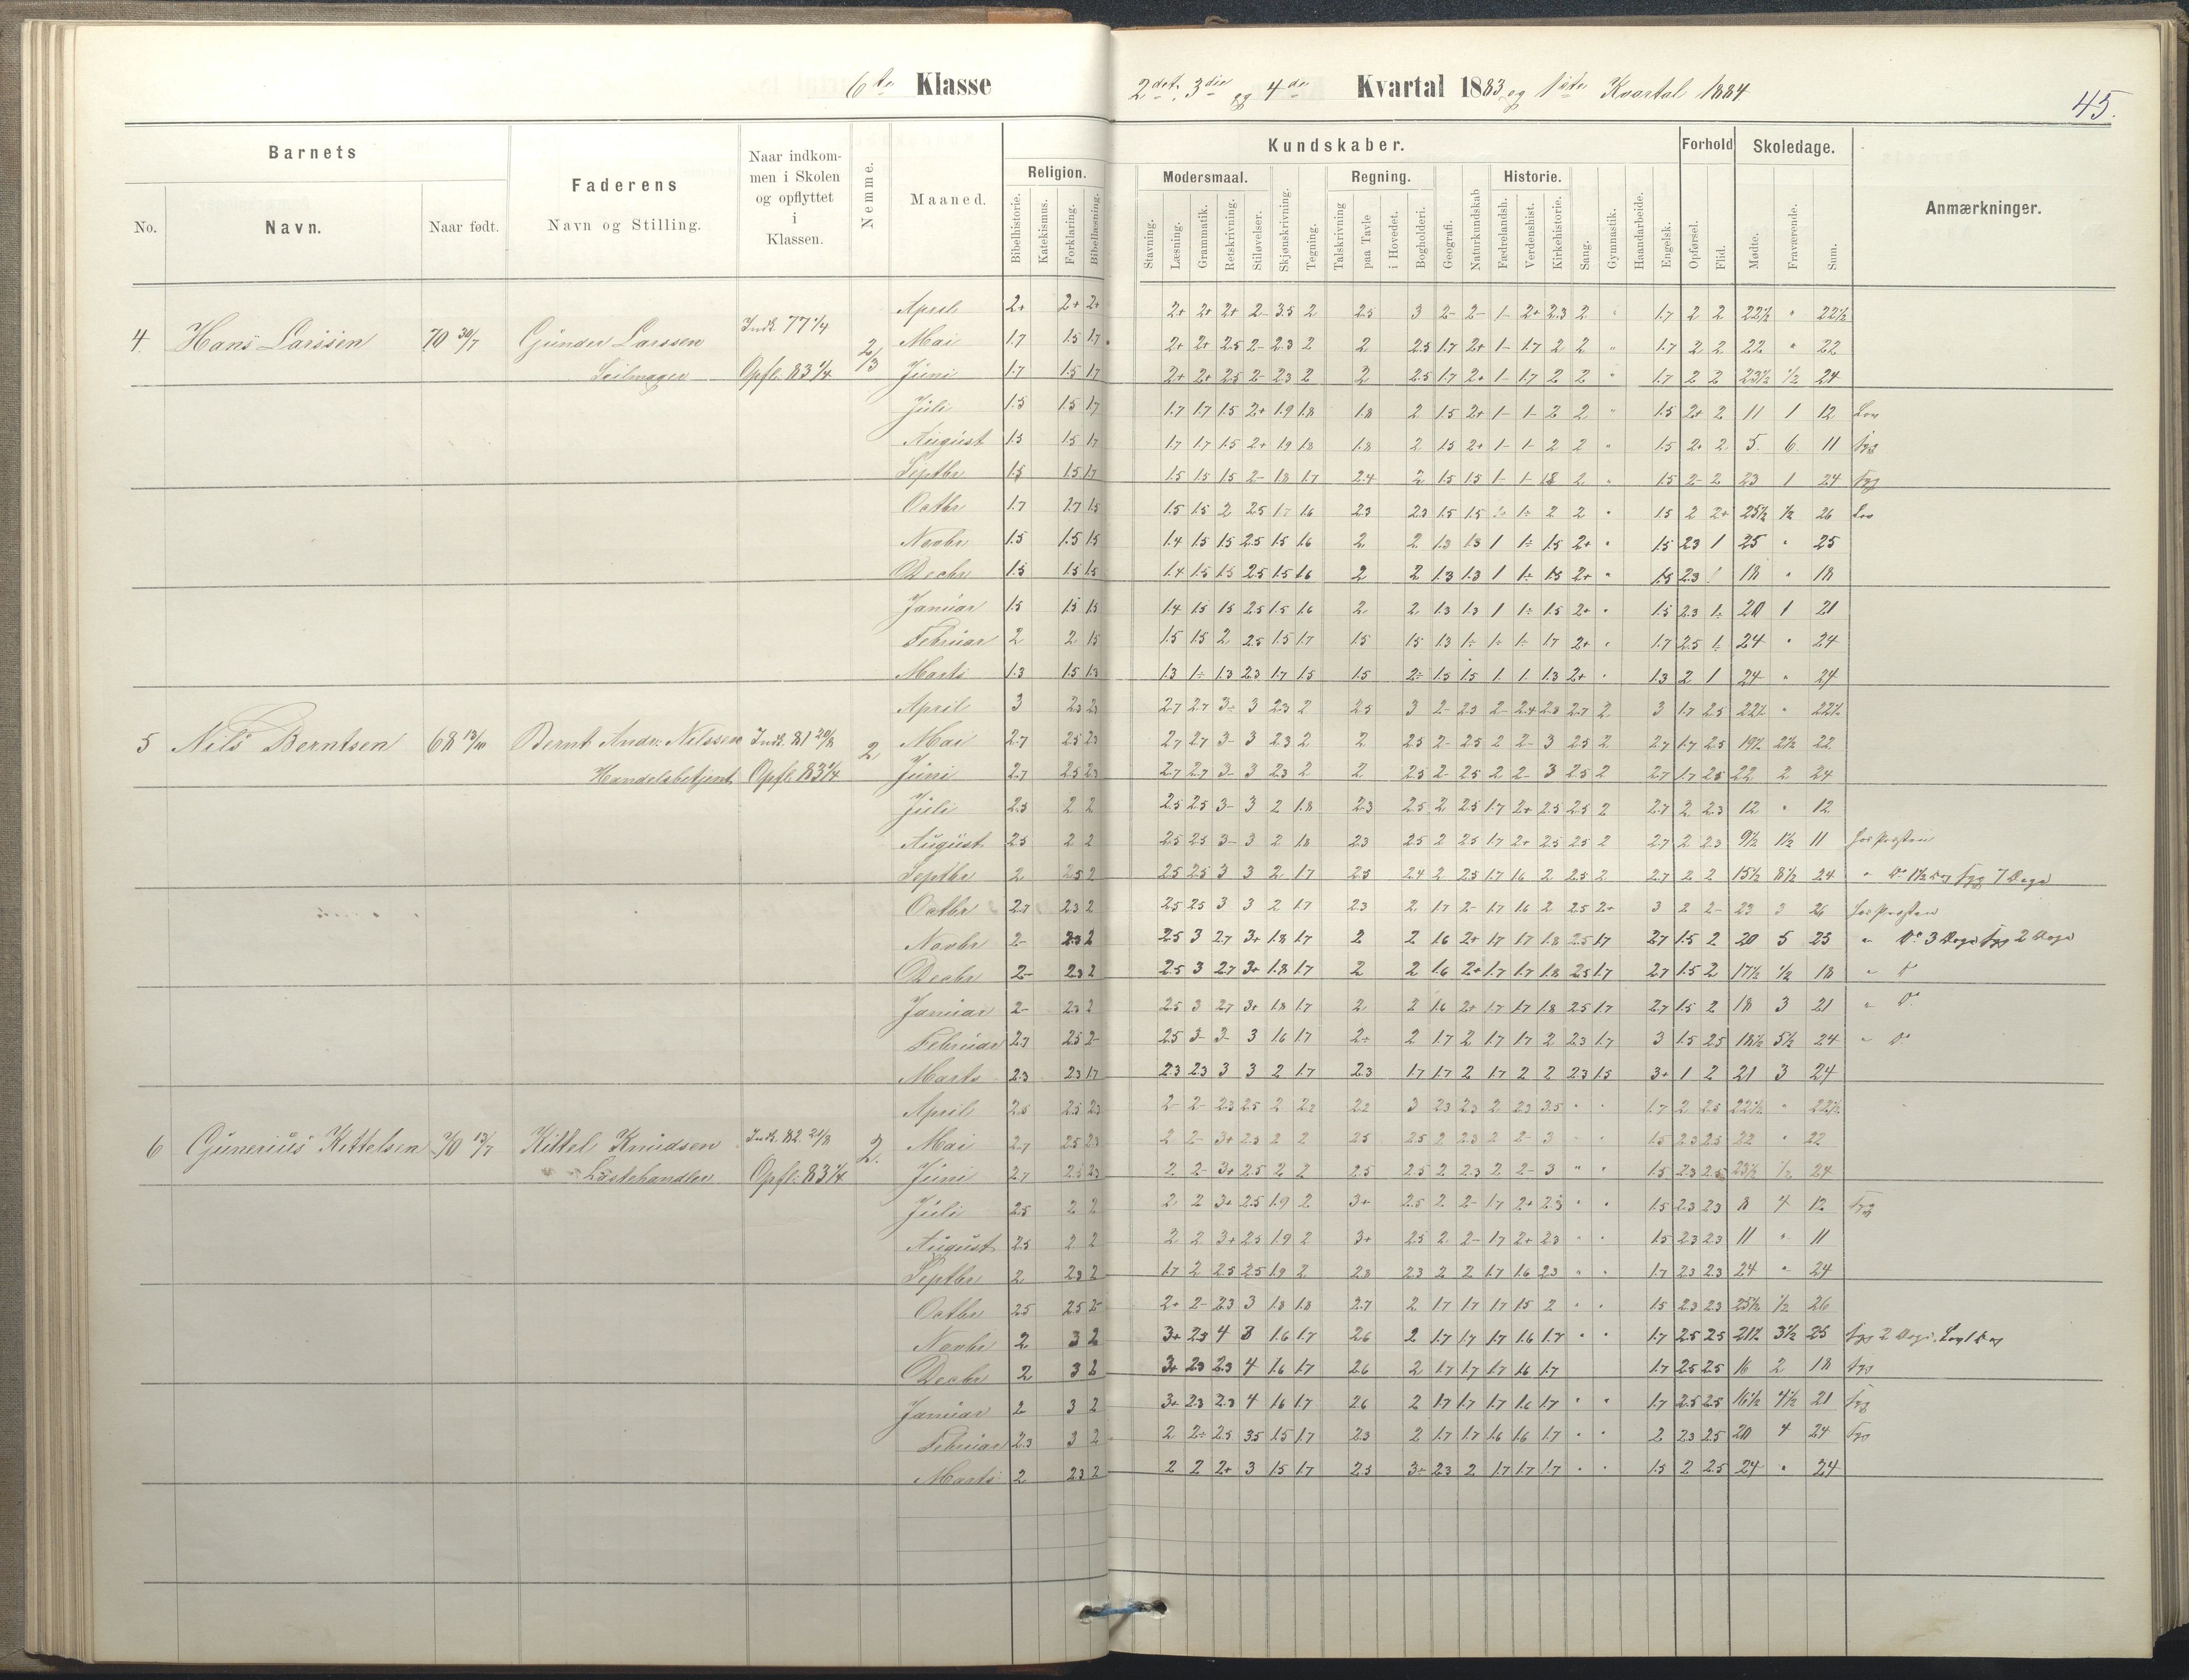 6te Klasse
2det, 3die og 4de Kvartal 1883 og 1ste Kvartal 1884
45.
Barnets
No.
Navn.
Naar født.
Faderens
Navn og Stilling.
Naar indkom-
men i Skolen
og opflyttet
i
Klassen.
Nemme.
Maaned.
Religion.
Bibelhistorie.
Katekismus.
Forklaring.
Bibellæsning.
Kundskaber.
Modersmaal.
Stavning.
Læsning.
Grammatik.
Retskrivning.
Stiløvelser.
Skjønskrivning.
Tegning.
Regning.
Talskrivning
paa Tavle
i Hovedet.
Bogholderi.
Geografi.
Naturkundskab
Historie.
Fædrelandsh.
Verdenshist.
Kirkehistorie.
Sang.
Gymnastik.
Haandarbeide.
Engelsk.
Forhold
Opførsel.
Flid.
Skoledage.
Mødte.
Fraværende.
Sum.
Anmærkninger.
4. Hans Larssen 70 30/7 Gunder Larssen Indk. 77 1/4 2/3
Seilmager Opfl. 83 1/4
April 2+ 2+ 2+ 2+ 2+ 2+ 2- 3.5 2 2.5 3 2- 2- 1- 2+ 2.3 2 " 1.7 2 2 22½ " 22½
Mai 1.7 1.5 1.7 2+ 2+ 2.5 2- 2.3 2 2 2.5 1.7 2+ 1- 1.7 2 2 " 1.7 2 2 22 " 22
Juni 1.7 1.5 1.7 2+ 2+ 2.5 2- 2.3 2 2 2.5 1.7 2+ 1- 1.7 2 2 " 1.7 2 2 23½ ½ 24
Juli 1.5 1.5 1.7 1.7 1.7 1.5 2+ 1.9 1.8 1.8 2 1.5 2+ 1- 1- 2 2 " 1.5 2+ 2 11 1 12 Lov
August 1.5 1.5 1.7 1.7 1.7 1.5 2+ 1.9 1.8 1.8 2 1.5 2+ 1- 1- 2 2 " 1.5 2+ 2 5 6 11 Syg
Septbr 1.5 1.5 1.7 1.5 1.5 1.5 2- 1.8 1.7 2.4 2 1.5 1.5 1- 1- 1.8 2 " 1.5 2- 2 23 1 24 Syg
Octbr 1.7 1.7 1.5 1.5 1.5 2 2.5 1.7 1.6 2.3 2.3 1.5 1.5 1÷ 2 2 " 1.5 2 2+ 25½ ½ 26 Lov
Novbr 1.5 1.5 1.5 1.4 1.5 1.5 2.5 1.5 1.6 2 2 1.3 1.3 1 1÷ 1.5 2+ " 1.5 2.3 1 25 " 25
Decbr 1.5 1.5 1.5 1.4 1.5 1.5 2.5 1.5 1.6 2 2 1.3 1.3 1 1÷ 1.5 2+ " 1.5 2.3 1 18 " 18
Januar 1.5 1.5 1.5 1.4 1.5 1.5 2.5 1.5 1.6 2 2 1.3 1.3 1 1÷ 1.5 2+ " 1.5 2.3 1÷ 20 1 21
Februar 2 2 1.5 1.5 1.5 2 2.5 1.5 1.7 1.5 1.5 1.3 1÷ 1÷ 1÷ 1.7 2+ " 1.7 2.5 1÷ 24 " 24
Marts 1.3 1.5 1.3 1.3 1÷ 1.3 2.3 1.7 1.5 1.5 2÷ 1.5 1.5 1 1 1.3 2+ " 1.3 2 1 24 " 24
5 Nils Berntsen 68 13/10 Bernt Andr. Nilssen Indk. 81 20/8 2
Handelsbetjent Opfl. 83 1/4
April 3 2.3 2.3 2.7 2.7 3÷ 3 2.3 2 2.5 3 2- 2.3 2- 2.4 2.3 2.7 2 3 1.7 2.5 22½ " 22½
Mai 2.7 2.5 2.3 2.7 2.7 3- 3 2.3 2 2 2.5 2- 2.5 2 2- 3 2.5 2 2.7 1.7 2.5 19½ 2½ 22
Juni 2.7 2.5 2.3 2.7 2.7 3- 3 2.3 2 2 2.5 2- 2.5 2 2- 3 2.5 2 2.7 1.7 2.5 22 2 24
Juli 2.5 2 2 2.5 2.5 3- 3 2 1.8 2.3 2.5 2 2.5 1.7 2+ 2.5 2.5 2 2.7 2 2.3 12 " 12
August 2.5 2 2 2.5 2.5 3- 3 2 1.8 2.3 2.5 2 2.5 1.7 2+ 2.5 2.5 2 2.7 2 2.3 9½ 1½ 11 hos Presten
Septbr 2 2.5 2 2.5 2.5 3 3 2 1.7 2.5 2.4 2 2.5 1.7 1.6 2 2.5 2 2.7 2 2 15½ 8½ 24 " Do 1½ Dag Syg 7 Dage
Octbr 2.7 2.3 2 2.5 2.5 3 3 2 1.7 2.3 2 1.7 2- 1.7 1.6 2 2.5 2+ 3 2 2- 23 3 26 hos Presten
Novbr 2- 2.3 2 2.5 3 2.7 3+ 1.8 1.7 2 2 1.6 2+ 1.7 1.7 1.8 2.5 1.7 2.7 1.5 2 20 5 25 " Do 3 Dage Syg 2 Dage
Decbr 2- 2.3 2 2.5 3 2.7 3+ 1.8 1.7 2 2 1.6 2+ 1.7 1.7 1.8 2.5 1.7 2.7 1.5 2 17½ ½ 18 " Do
Januar 2- 2.3 2 2.5 3 2.7 3+ 1.8 1.7 2 2 1.6 2+ 1.7 1.7 1.8 2.5 1.7 2.7 1.5 2 18 3 21 " Do
Februar 2.7 2.5 2- 2.5 3- 3- 3 1.6 1.7 2÷ 2 1.7 2 1.7 1.7 2 2.3 1.7 3 1.5 2.5 18½ 5½ 24 " Do
Marts 2.3 2.3 1.7 2.3 2.3 3 3 2 1.7 2.3 1.7 1.7 2 1.7 2 2 2.3 1.5 3+ 1 2 21 3 24
6 Gunerius Kittelsen 70 13/7 Kittel Knudsen Indk. 82 21/8 2.
Læstehandler Opfl. 83 1/4
April 2.5 2.5 2.3 2- 2- 2.3 2.5 2 2.2 2.2 3 2.3 2.3 2 2.3 3.5 " " 1.7 2 2.5 22½ " 22½
Mai 2.7 2.5 2.3 2 2- 3+ 2.3 2 2 2.5 2.5 2 2.3 2 2- 3 " " 1.5 2.3 2.5 22 " 22
Juni 2.7 2.5 2.3 2 2- 3+ 2.5 2 2 2.5 2.5 2 2.3 2 2- 3 " " 1.5 2.3 2.5 23½ ½ 24
Juli 2.5 2 2 2 2 3+ 2.5 1.9 2 3+ 2.5 2 2- 1.7 2+ 2.3 " " 1.5 2.3 2.3 8 4 12 Syg
August 2.5 2 2 2 2 3+ 2.5 1.9 2 3+ 2.5 2 2- 1.7 2+ 2.3 " " 1.5 2.3 2.3 11 " 11
Septbr 2 2.3 2 1.7 2 2.5 2.5 1.9 2 2.8 2.3 2 2 1.7 1.6 2.3 " " 1.7 2.3 2.3 24 " 24
Octbr 2.5 2.5 2- 2+ 2- 2.3 3 1.8 1.8 2.7 2 1.7 1.7 1.7 1.5 2 " " 1.5 2.3 2.3 25½ ½ 26
Novbr 2 3 2 3+ 2.3 4 3 1.6 1.7 2.6 2 1.7 1.7 1.7 1.6 1.7 " " 1.7 2.5 2.5 21½ 3½ 25 Syg 2 Dage, Lov 1 Dag
Decbr 2 3 2 3+ 2.3 2.3 4 1.6 1.7 2.6 2 1.7 1.7 1.7 1.6 1.7 1.7 2.5 2.5 16 2 18 Syg
Januar 2 3 2 3+ 2.3 2.3 4 1.6 1.7 2.6 2 1.7 1.7 1.7 1.6 1.7 " " 1.7 2.5 2.5 16½ 4½ 21 Syg
Februar 2.3 3 2 2 2÷ 2.5 3.5 1.5 1.7 2.3 2 1.7 1.7 1.6 1.6 1.7 " " 2 2.3 2.5 20 4 24 Syg
Marts 2 2.3 2 2 2 2+ 3 1.5 1.7 2.5 3÷ 2.3 2 1.7 1.7 1.7 " " 1.5 2 2.5 24 " 24